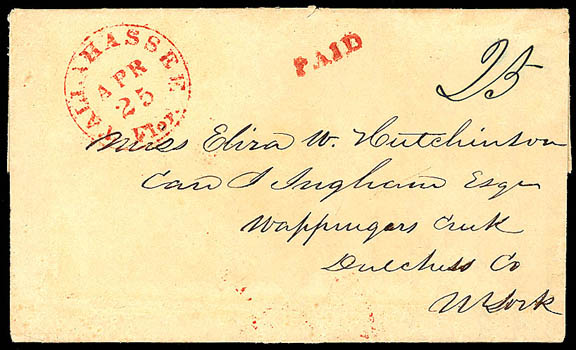 TALLAHASSEE
APR
25
Flor.
PAID
25
Miss Eliza W. Hutchinson
Care S Ingham Esqr
Wappingers Creek
Dutchess Co
N York